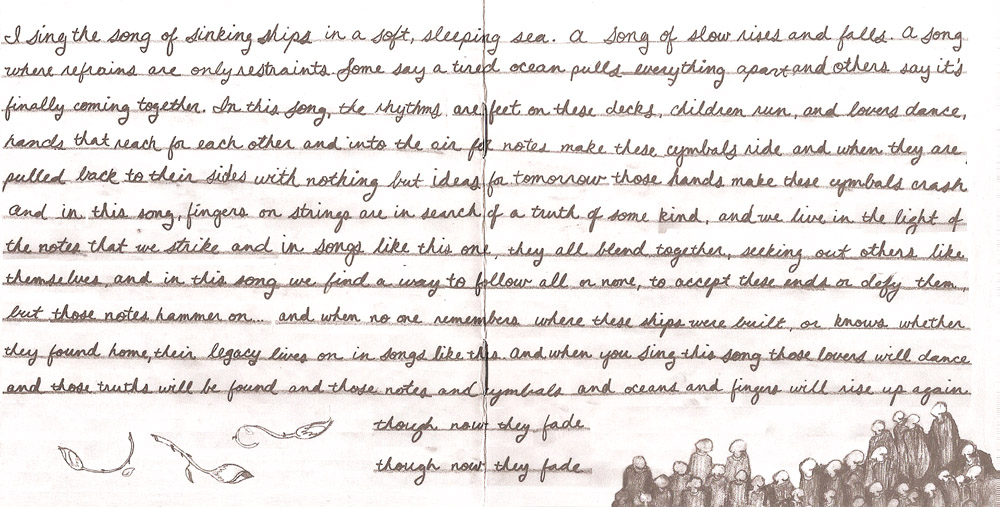 I sing the song of sinking ships in a soft, sleeping sea. A song of slow rises and falls. A song
where refrains are only restraints. Some say a tired ocean pulls everything apart and others say it's
finally coming together. In this song, the rhythms are feet on these decks, children run, and lovers dance,
hands that reach for each other and into the air for notes make these cymbals ride and when they are
pulled back to their sides with nothing but ideas for tomorrow those hands make these cymbals crash
and in this song, fingers on strings are in search of a truth of some kind, and we live in the light of
the notes that we strike and in songs like this one, they all blend together, seeking out others like
themselves, and in this song we find a way to follow all or none, to accept these ends or defy them,
but those notes hammer on... and when no one remembers where these ships were built, or knows whether
they found home, their legacy lives on in songs like this. And when you sing this song those lovers will dance
and those truths will be found and those notes and cymbals and oceans and fingers will rise up again
though now they fade
though now they fade